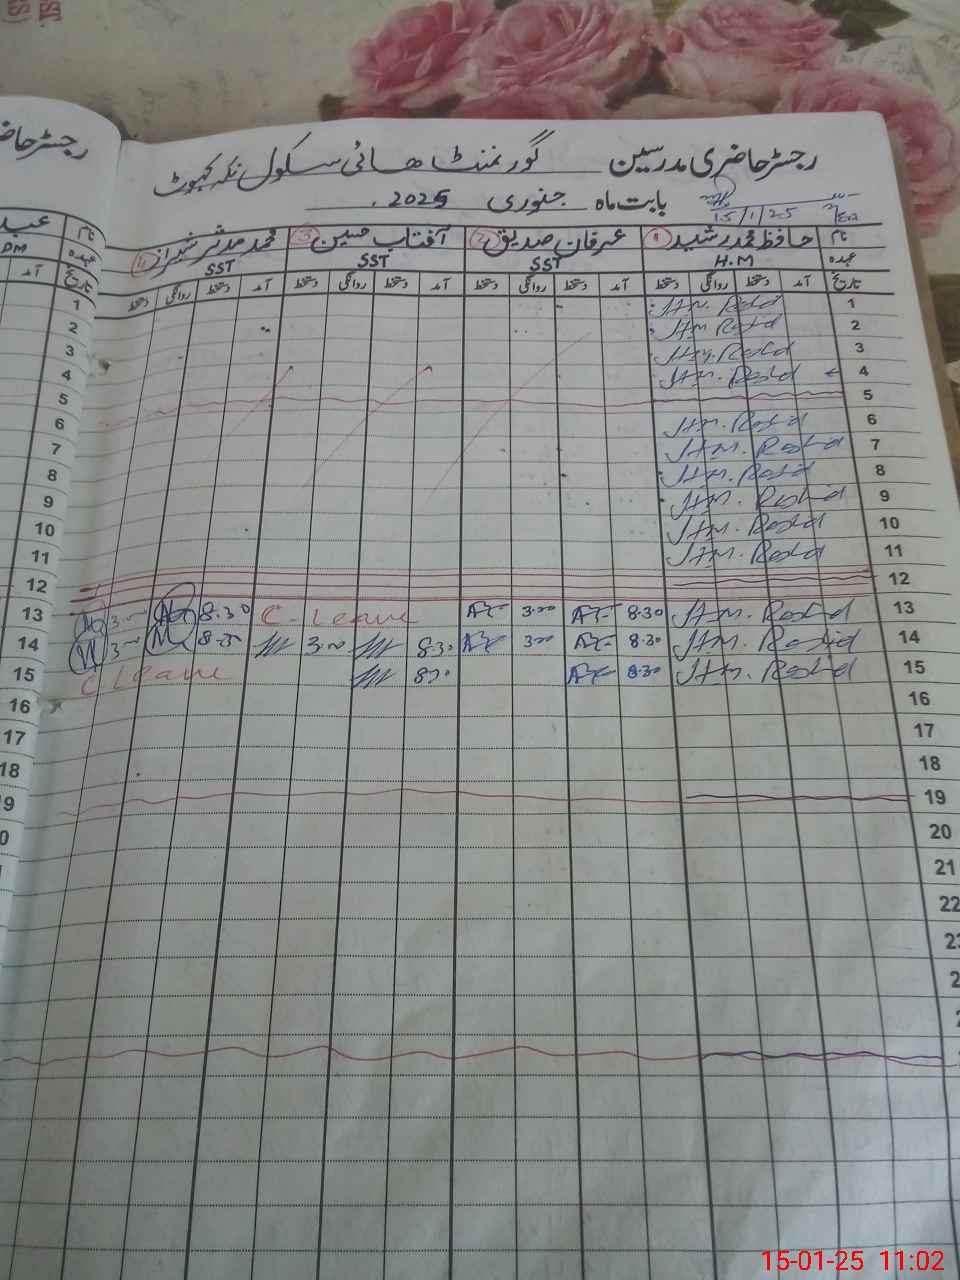 رجسٹر حاضری مدرسین گورنمنٹ ھائی سکول نکہ کہوٹ
بابت ماہ جنوری 2025
15/1/25
نام حافظ محمد رشید ① عرفان صدیق ② آفتاب حسین ③ محمد مدثر شہزاز ④
عہدہ H.M SST SST SST
تاریخ آمد دستخط روانگی دستخط آمد دستخط روانگی دستخط آمد دستخط روانگی دستخط آمد دستخط روانگی دستخط
1 H.M. Rashid
2 H.M. Rashid
3 H.M. Rashid
4 H.M. Rashid
5
6 H.M. Rashid
7 H.M. Rashid
8 H.M. Rashid
9 H.M. Rashid
10 H.M. Rashid
11 H.M. Rashid
12
13 H.M. Rashid 8.30 3.00 C-Leave 8.30 3
14 H.M. Rashid 8.30 3.00 8.30 3.00 8.30 3
15 H.M. Rashid 8.30 8.30 C Leave
16
17
18
19
20
21
22
رجسٹر حا
نام
عہدہ
تاریخ آمد
1
2
3
4
5
6
7
8
9
10
11
12
13
14
15
16
17
18
15-01-25 11:02